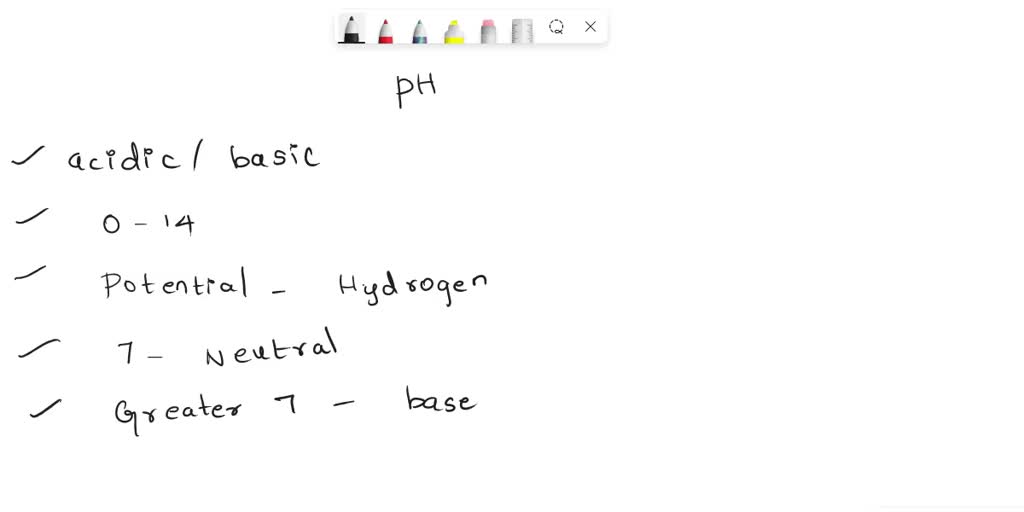 pH
acidic / basic
0 - 14
Potential - Hydrogen
7 - Neutral
Greater 7 - base